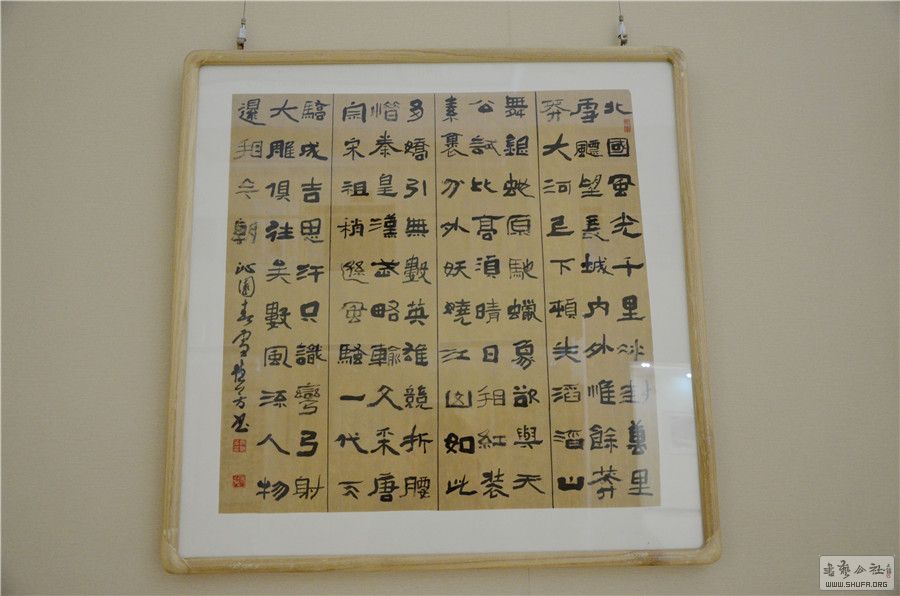 北國風光千里冰封萬里
雪飄望長城內外惟餘莽
莽大河上下頓失滔滔山
舞銀蛇原馳蠟象欲與天
公試比高須晴日看紅裝
素裹分外妖嬈江山如此
多嬌引無數英雄競折腰
惜秦皇漢武略輸文采唐
宗宋祖稍遜風騷一代天
驕成吉思汗只識彎弓射
大雕俱往矣數風流人物
還看今朝 沁園春雪
書藝公社
WWW.SHUFA.ORG